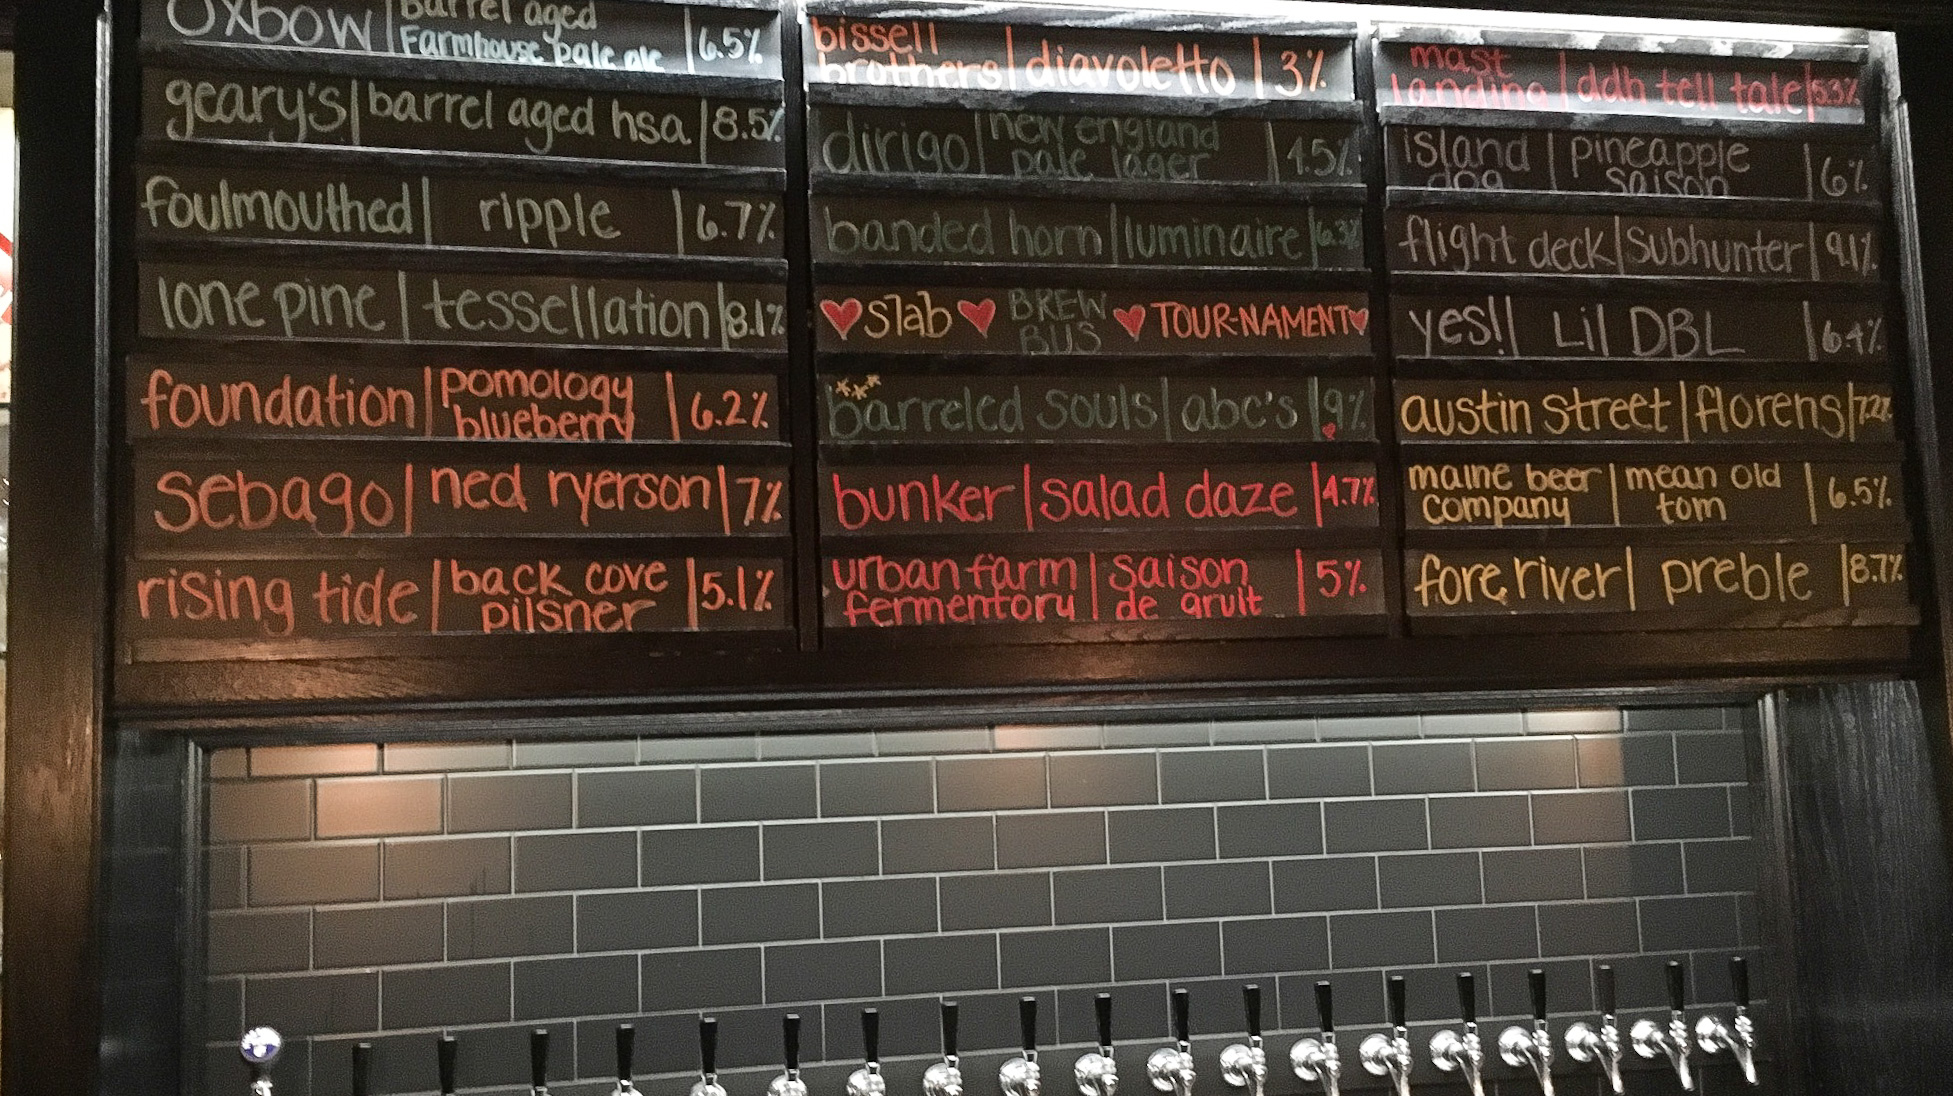 oxbow | Barrel aged Farmhouse pale ale | 6.5%
geary's | barrel aged hsa | 8.5%
foulmouthed | ripple | 6.7%
lone pine | tessellation | 8.1%
foundation | pomology blueberry | 6.2%
sebago | ned ryerson | 7%
rising tide | back cove pilsner | 5.1%
bissell brothers | diavoletto | 3%
dirigo | new england pale lager | 4.5%
banded horn | luminaire | 6.3%
slab BREW BUS TOUR-NAMENT
barreled souls | abc's | 9%
bunker | salad daze | 4.7%
urban farm fermentory | saison de gruit | 5%
mast landing | ddh tell tale | 5.3%
island dog | pineapple saison | 6%
flight deck | subhunter | 9.1%
yes!! | Lil DBL | 6.4%
austin street | florens | 7.2%
maine beer company | mean old tom | 6.5%
fore river | preble | 8.7%